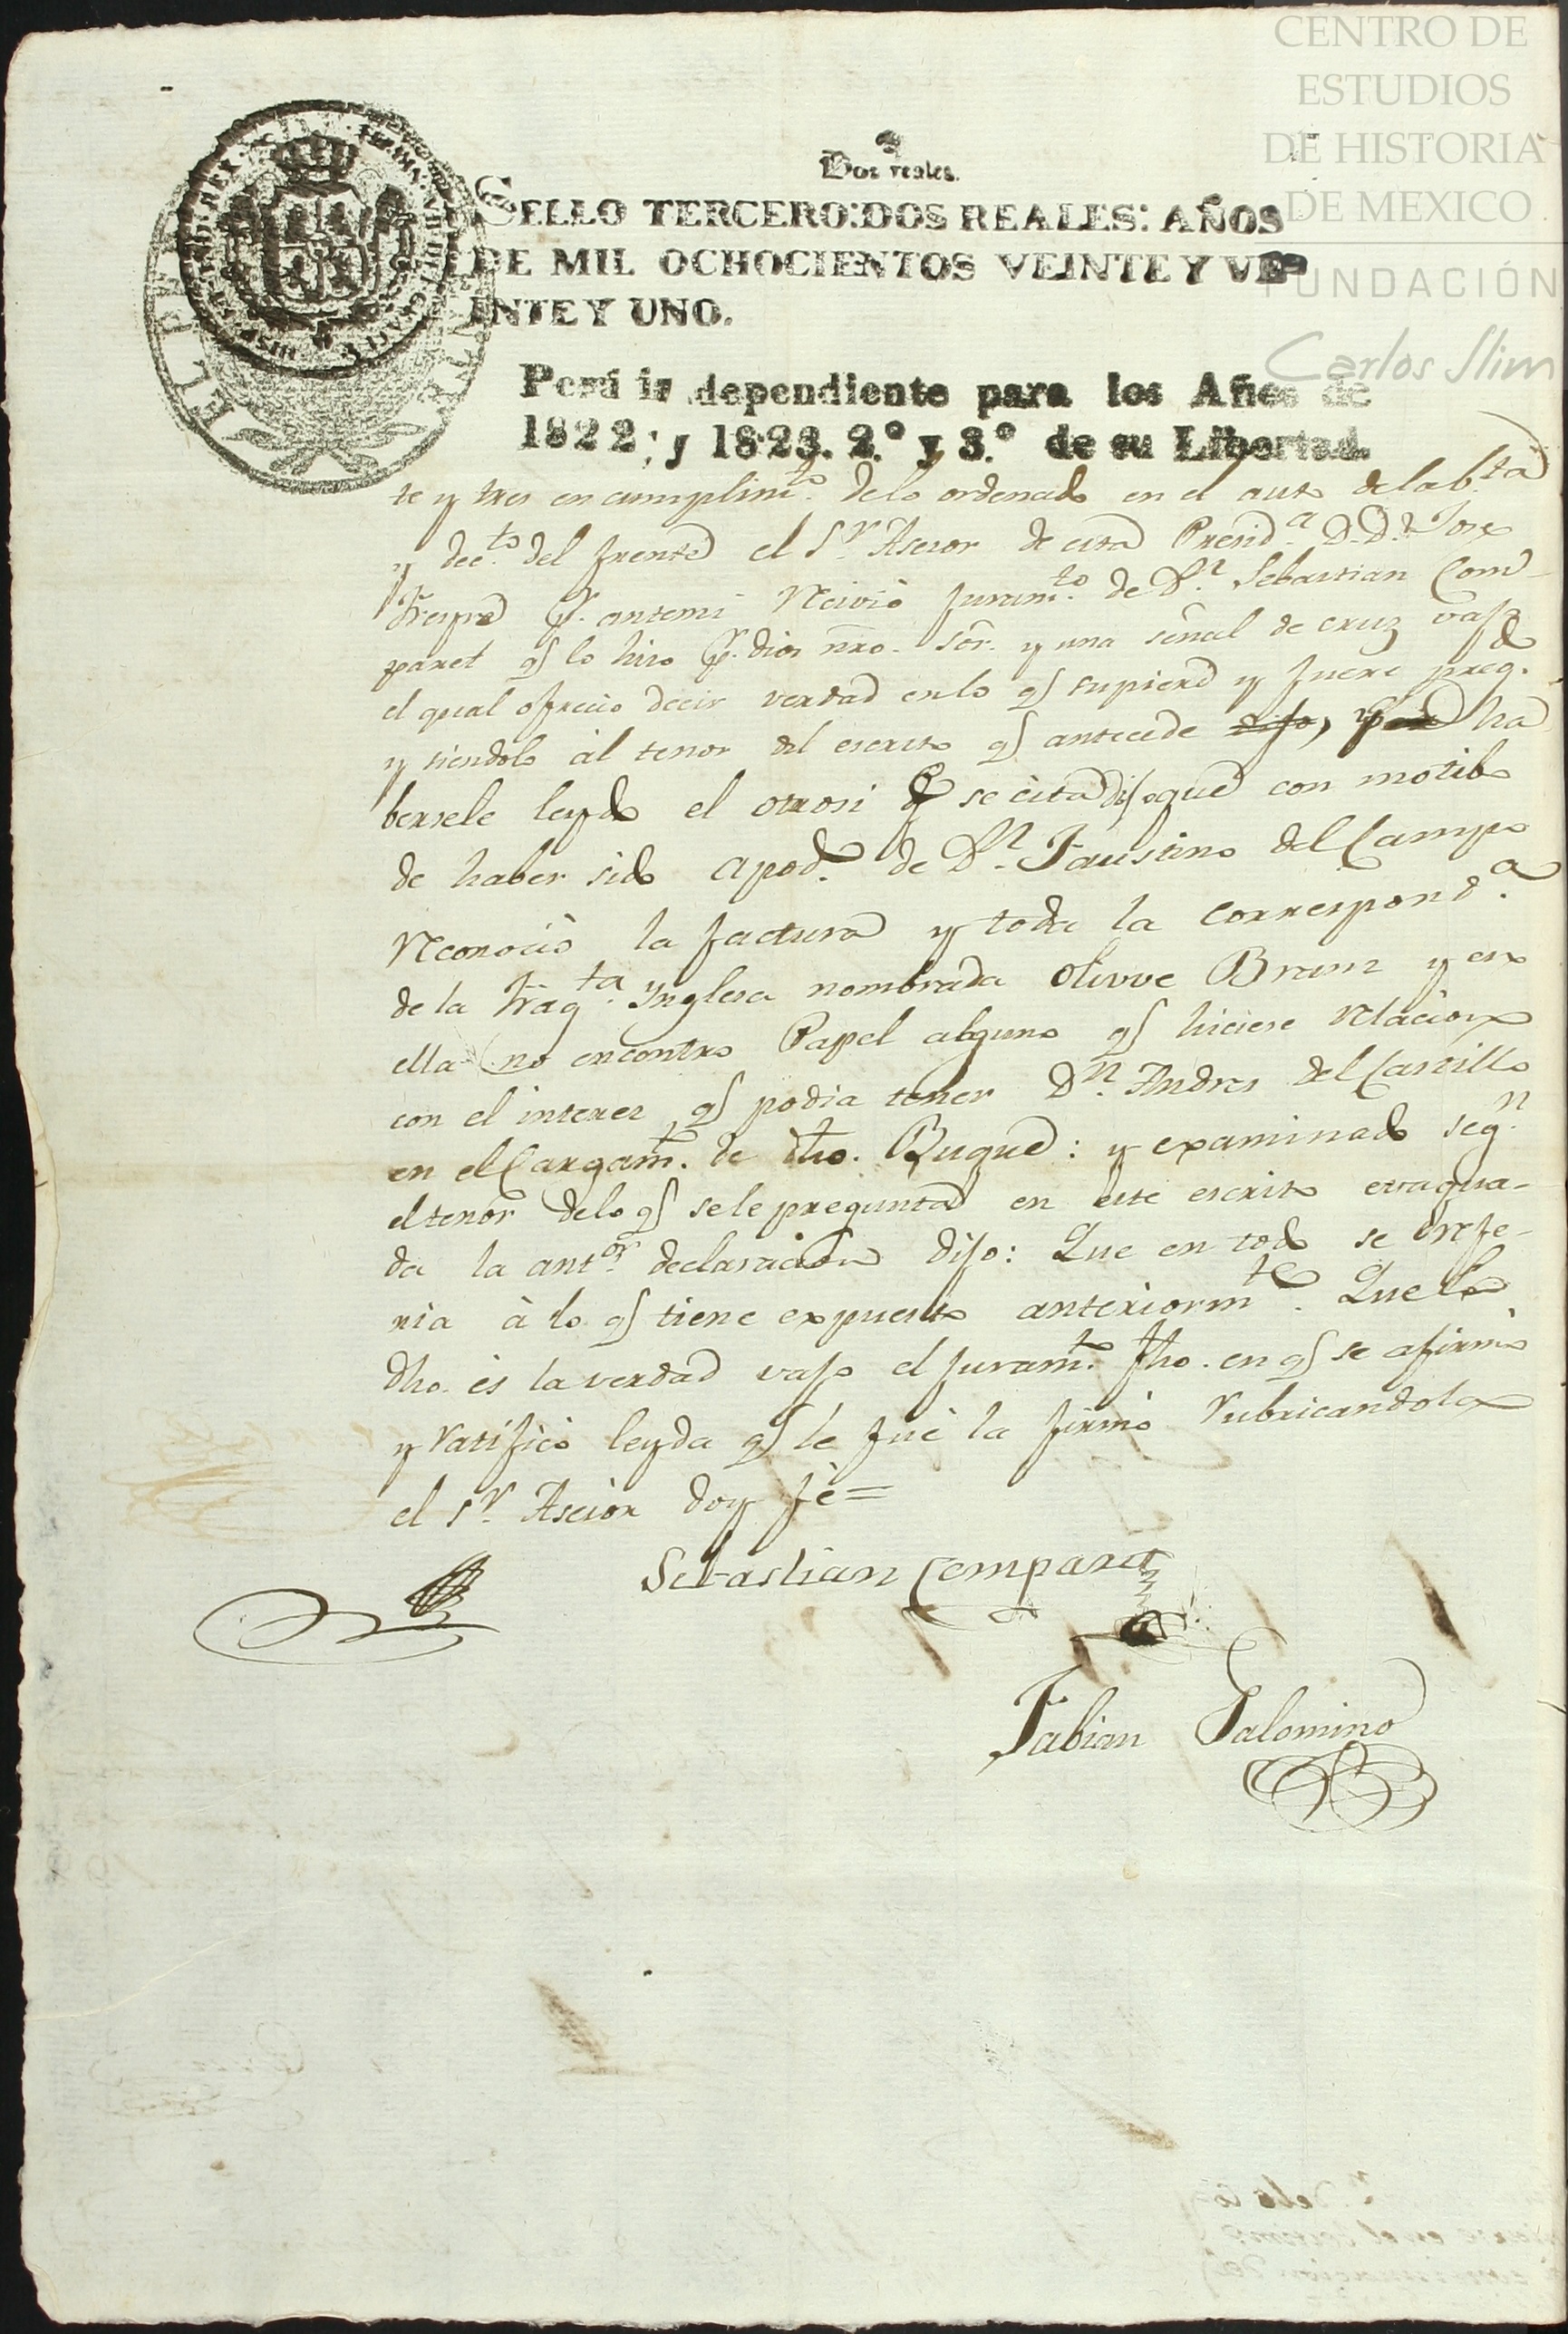 CENTRO DE
ESTUDIOS
DE HISTORIA
DE MEXICO
FUNDACIÓN
Carlos Slim
Dos reales.
SELLO TERCERO: DOS REALES: AÑOS
DE MIL OCHOCIENTOS VEINTE Y VE-
INTE Y UNO.
Perú independiente para los Años de
1822; y 1823. 2.º y 3.º de su Libertad.
te y tres en cumplim.to delo ordenado en el auto de la b.ta
y dec.to del frente el S.r Asesor de esta Presid.a D. D. Jose
p. antemi recivió juram.to de D.n Sebastian Com-
paret q.e lo hiso p. dios nro. Sor. y una señal de cruz vajo
el qual ofrecio decir verdad en lo q.e supiere y fuere preg.do
y siendolo àl tenor del escrito q.e antecede dijo, ha
bersele leydo el otrosi q.e se cita dijo que con motibo
de haber sido Apod.o de D.n Faustino del Campo
reconociò la factura y toda la correspond.a
de la frag.ta Ynglesa nombrada Olivve Branz y en
ella no encontro Papel alguno q.e hiciese relacion
con el interes q.e podia tener D.n Andres del Castillo
en el Cargam.to de dho. Buque: y examinado seg.n
el tenor delo q.e sele pregunta en este escrito evaqua-
da la ant.or declaracion dijo: Que en todo se refe-
ria à lo q.e tiene expuesto anteriorm.te Que lo
dho. es la verdad vajo el juram.to fho. en q.e se afirmó
y ratificó leyda q.e le fué la firmó rubricandola
el S.r Asesor doy fè=
Sebastian Comparet
Fabian Palomino